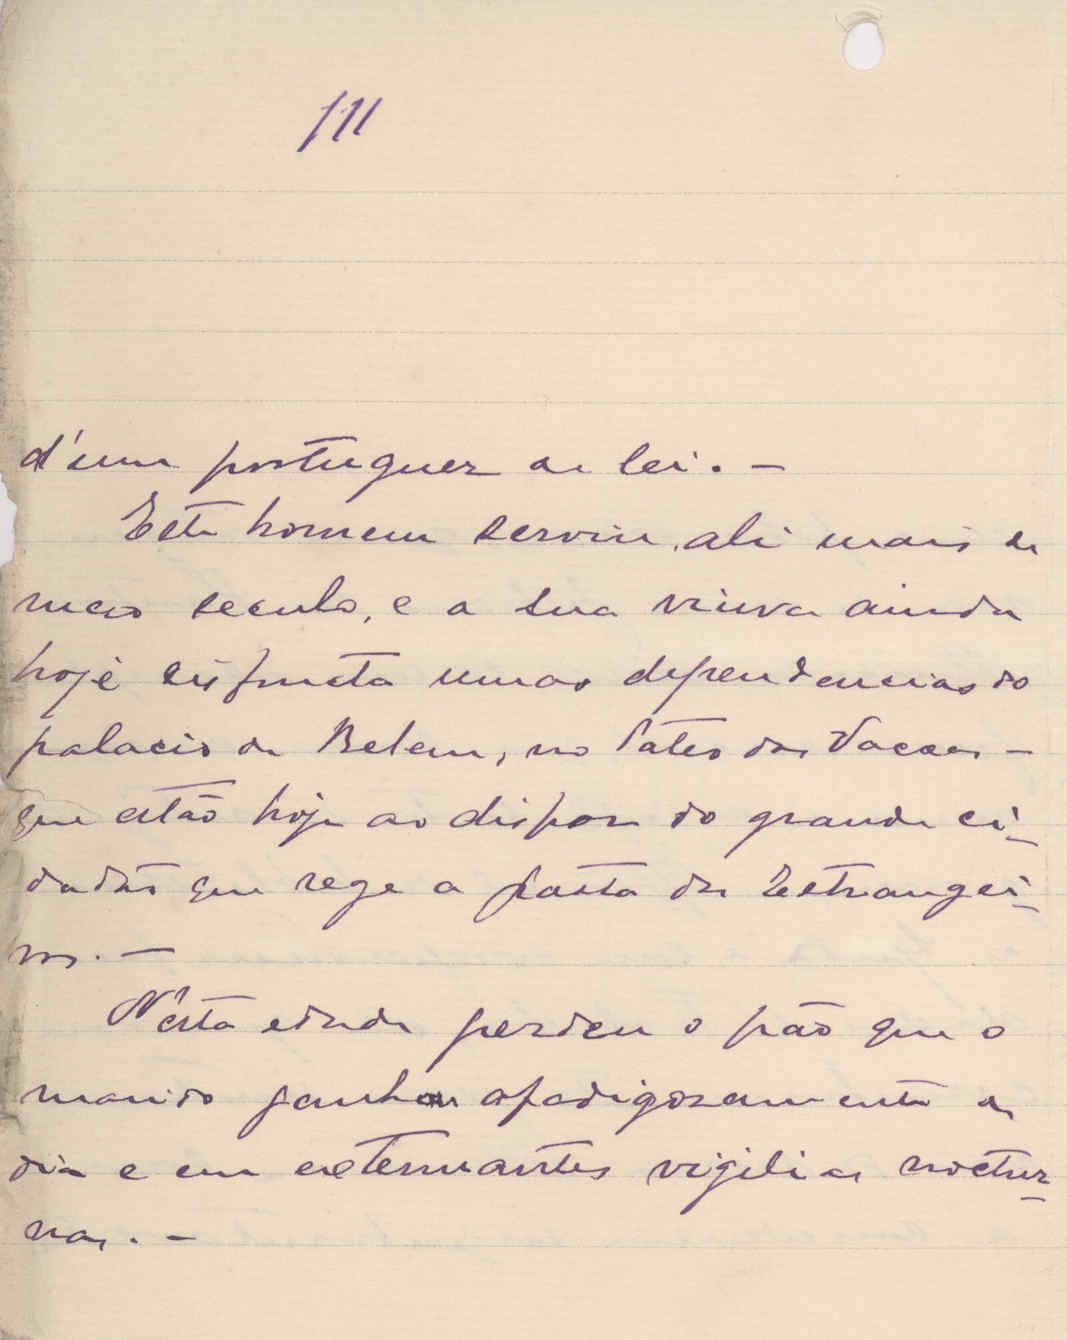 III
d'um portuguez de lei. —
Este homem serviu ali mais de
meio seculo, e a sua viuva ainda
hoje disfructa umas dependencias do
palacio de Belem, no Pateo das Vaccas —
que estão hoje ao dispor do grande ci-
dadão que rege a pasta dos Estrangei-
ros. —
N'esta edade perdeu o pão que o
marido ganhou afadigosamente de
dia e em extenuantes vigilias noctur-
nas. —